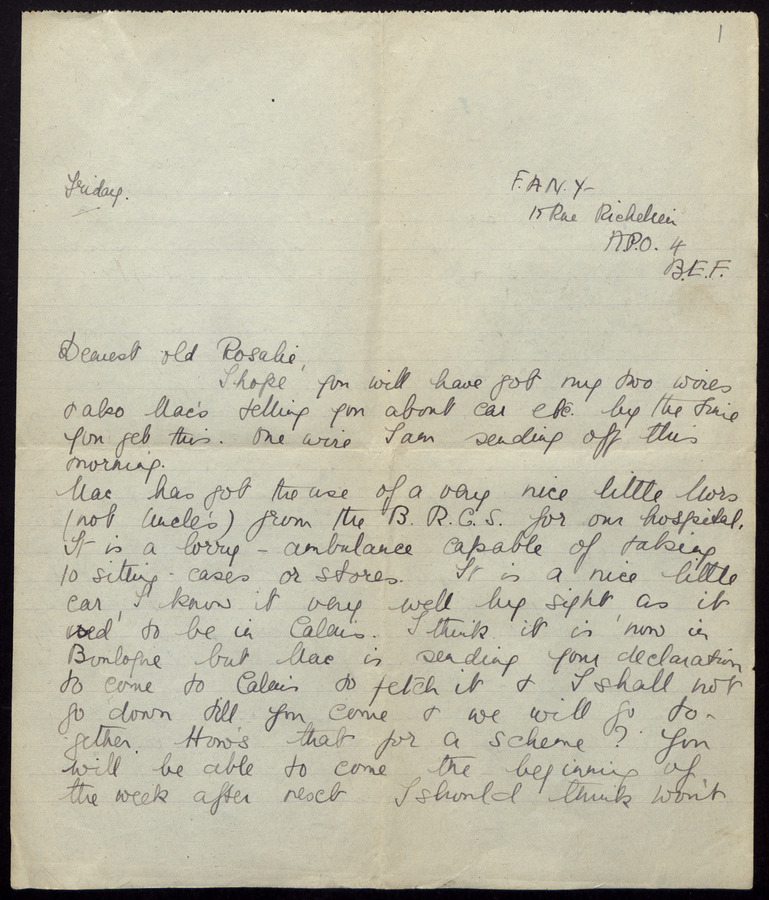 1
Friday.
F.A.N.Y.
15 Rue Richelieu
A.P.O. 4
B.E.F.
Dearest old Rosalie,
I hope you will have got my two wires
& also Mac's telling you about car etc. by the time
you get this. One wire I am sending off this
morning.
Mac has got the use of a very nice little Mors
(not Uncle's) from the B.R.C.S. for our hospital.
It is a lorry - ambulance capable of taking
10 sitting-cases or stores. It is a nice little
car, I know it very well by sight as it
used to be in Calais. I think it is now in
Boulogne but Mac is sending your declaration
to come to Calais to fetch it & I shall not
go down till you come & we will go to-
gether. How's that for a scheme? You
will be able to come the beginning of
the week after next I should think won't